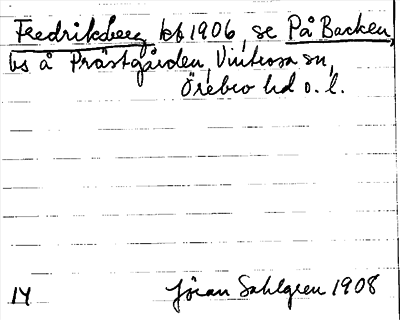 Fredriksberg kf 1906, se På Backen,
bs å Prästgården, Vintrosa sn,
Örebro hd o. l.
14 Jöran Sahlgren 1908